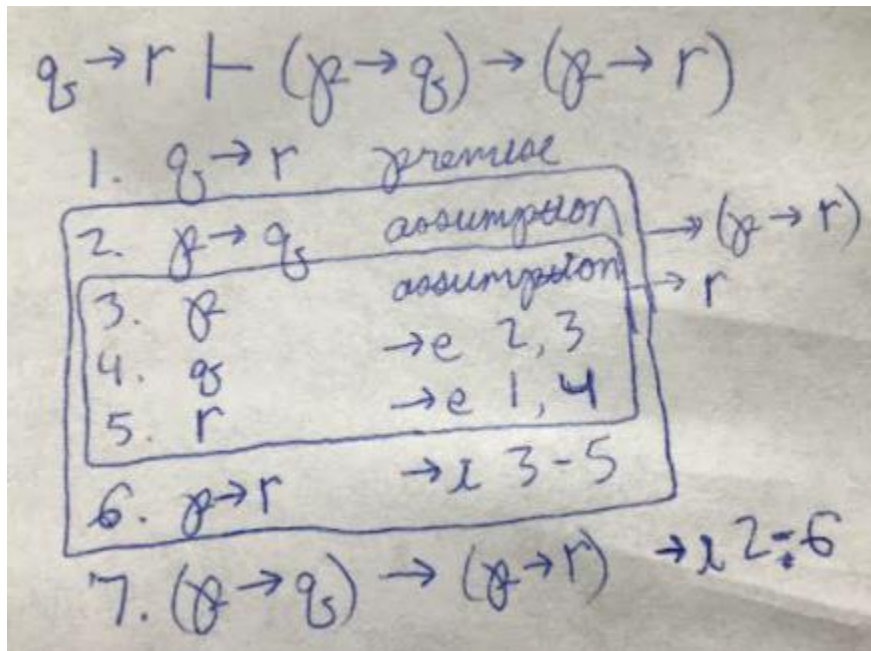 q → r ⊢ (p → q) → (p → r)
1. q → r premise
2. p → q assumption → (p → r)
3. p assumption → r
4. q →e 2, 3
5. r →e 1, 4
6. p → r →i 3-5
7. (p → q) → (p → r) →i 2-6